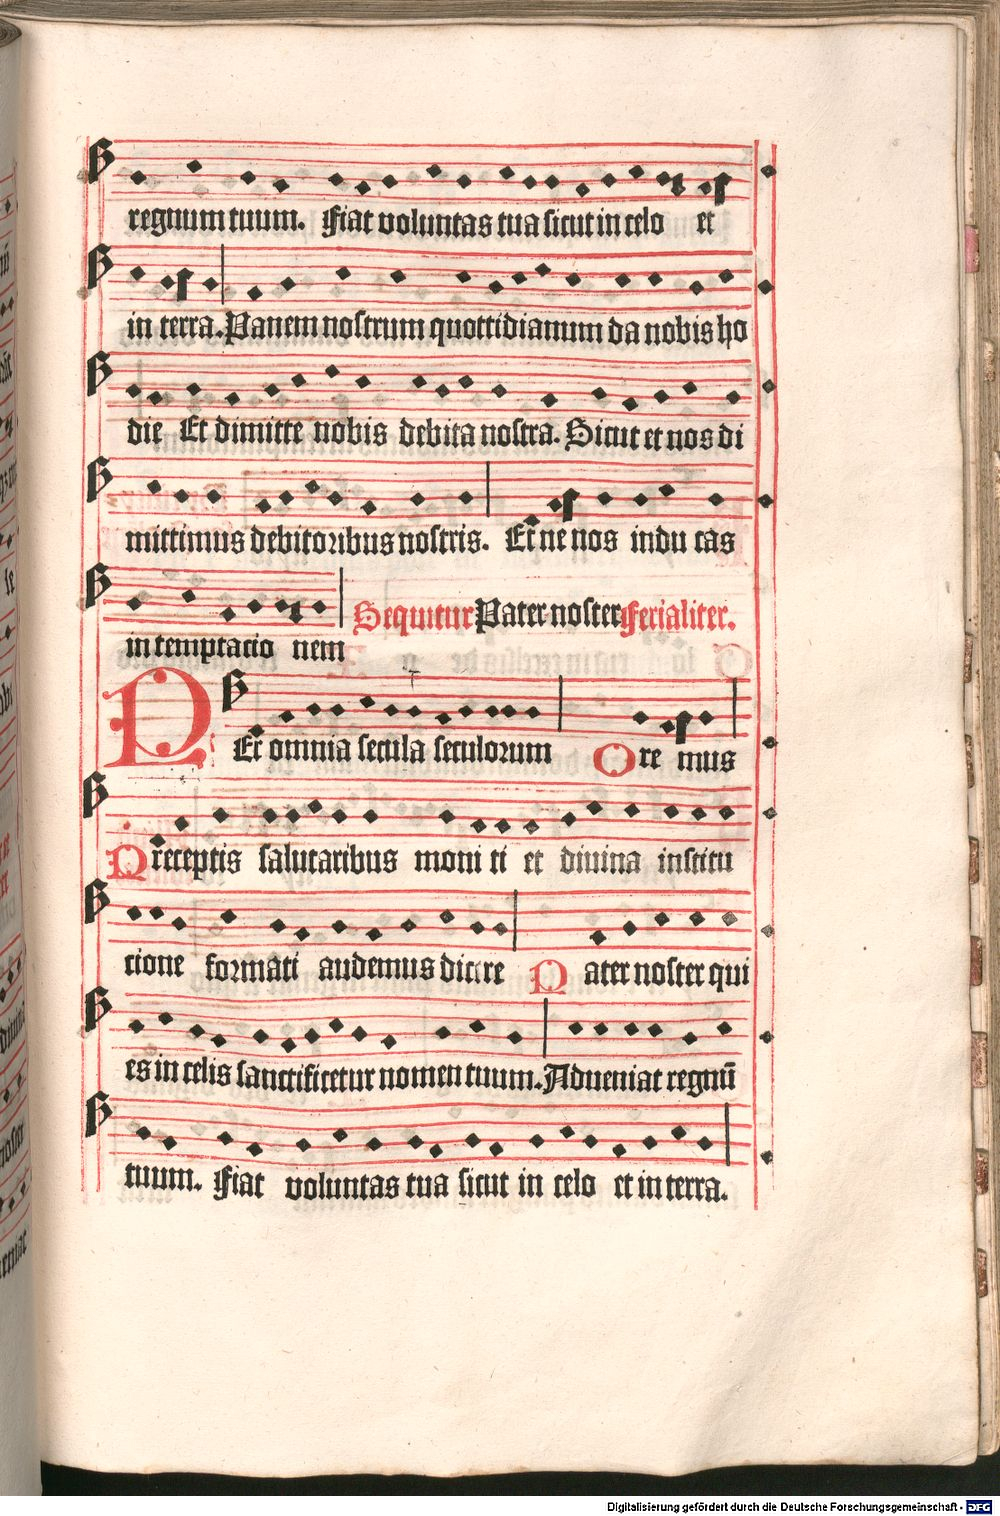 regnum tuum. Fiat voluntas tua sicut in celo et
in terra. Panem nostrum quottidianum da nobis ho
die Et dimitte nobis debita nostra. Sicut et nos di
mittimus debitoribus nostris. Et ne nos indu cas
in temptacio nem
Sequitur Pater noster ferialiter.
PEr omnia secula seculorum Ore mus
Preceptis salutaribus moni ti et diuina institu
cione formati audemus dicere Pater noster qui
es in celis sanctificetur nomen tuum. Adueniat regnū
tuum. Fiat voluntas tua sicut in celo et in terra.
Digitalisierung gefördert durch die Deutsche Forschungsgemeinschaft - DFG